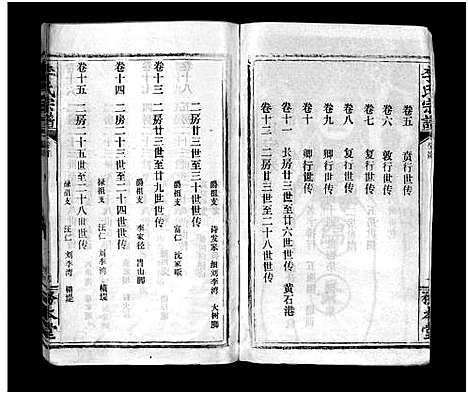 李氏宗譜
卷五 贲行世传
卷六 敦行世传
卷七 复行世传
卷八 复行世传
卷九 卿行世传
卷十 卿行世传
卷十一 长房廿三世至廿六世世传 黄石港
卷十三 二房廿三世至二十八世世传
二房廿三世至三十世世传
爵祖支 诗发家 细刘李湾 大树脚
卷十三 二房廿三世至廿九世世传
爵祖支 富仁 沈家畈
李家径 肖山脚
卷十四 二房二十三世至二十四世世传
禄祖支 汪仁 刘李湾 横堤
卷十五 二房二十五世至二十八世世传
禄祖支 汪仁 刘李湾 横堤